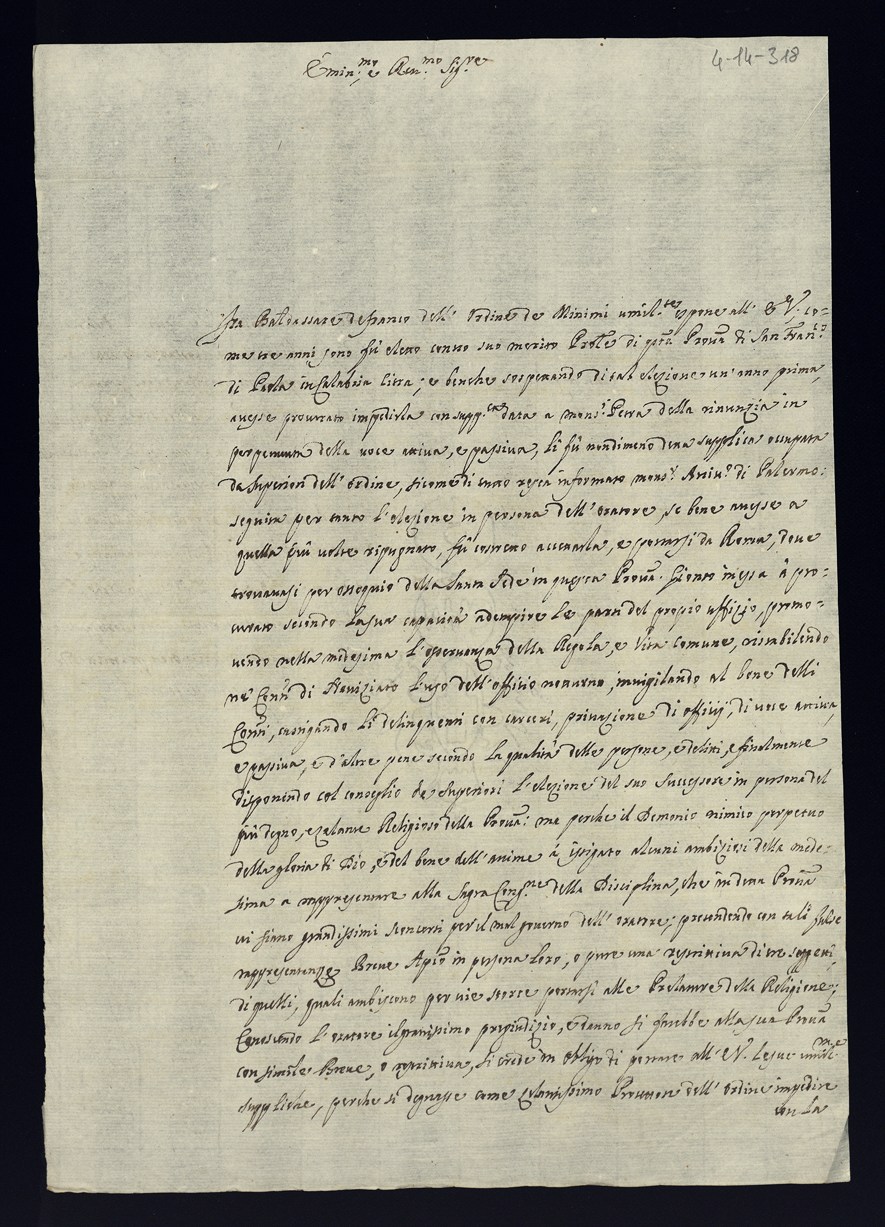 4-14-318
Emin.mo e Ren.mo Sig.re
fra Baldassare de franco dell' Ordine de Minimi umil.te espone all' E V. co=
me tre anni sono fù eletto contro suo merito Prõle di qsta Provã di San Fran.co
di Paola in Calabria Citra; e benche sospettando di tal elezione un' anno prima,
avesse procurato impedirla con supp.ca data a mons.r Petra della rinunzia in
perpetuum della voce attiva, e passiva, li fù nondimeno detta supplica occupata
da Superiori dell' Ordine, sicome di tutto resta informato mons.r di Palermo:
seguita per tanto l'elezione in persona dell' Oratore, se bene avesse a
quella più volte ripugnato, fù costretto accettarla, e portarsi da Roma, dove
trovavasi per ossequio della Santa Sede in questa Provã. Gionto in essa à pro=
curato secondo la sua capacità adempire le parti del propio uffizio, promo=
vendo nella medesima l'osservanza della Regola, e Vita Comune, ristabilendo
ne' Conti di Noviziato l'uso dell' officio notturno, invigilando al bene delli
Conti, castigando li delinquenti con carceri, privazione di officij, di voce attiva,
e passiva, e d'altre pene secondo la qualità delle persone, e delitti, e finalmente
disponendo col conseglio de Superiori l'elezione del suo Successore in persona del
più degno, e zelante Religioso della Provã: ma perche il Demonio nimico perpetuo
della gloria di Dio, e del bene dell' anime à istigato alcuni ambiziosi della mede=
sima a rappresentare alla Sagra Cong.ne della Disciplina, che in detta Provã
vi siano grandissimi sconcerti per il mal governo dell' Oratore; pretendendo con tali false
rappresentanze Breve Apco in persona loro, o pure una restrittiva di tre soggetti,
di quelli, quali ambiscono per vie storte portarsi alle Prelature della Religione;
Conoscendo l'Oratore il gravissimo pregiudizio, e danno si farebbe alla sua Provã
con simile Breve, o restrittiva, si crede in obligo di portare all' E V. le sue umil.me
suppliche, perche si degnasse come zelantissimo Protettore dell' Ordine impedire
con la